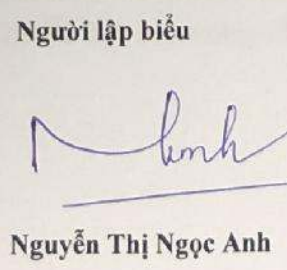 Người lập biểu
Nguyễn Thị Ngọc Anh